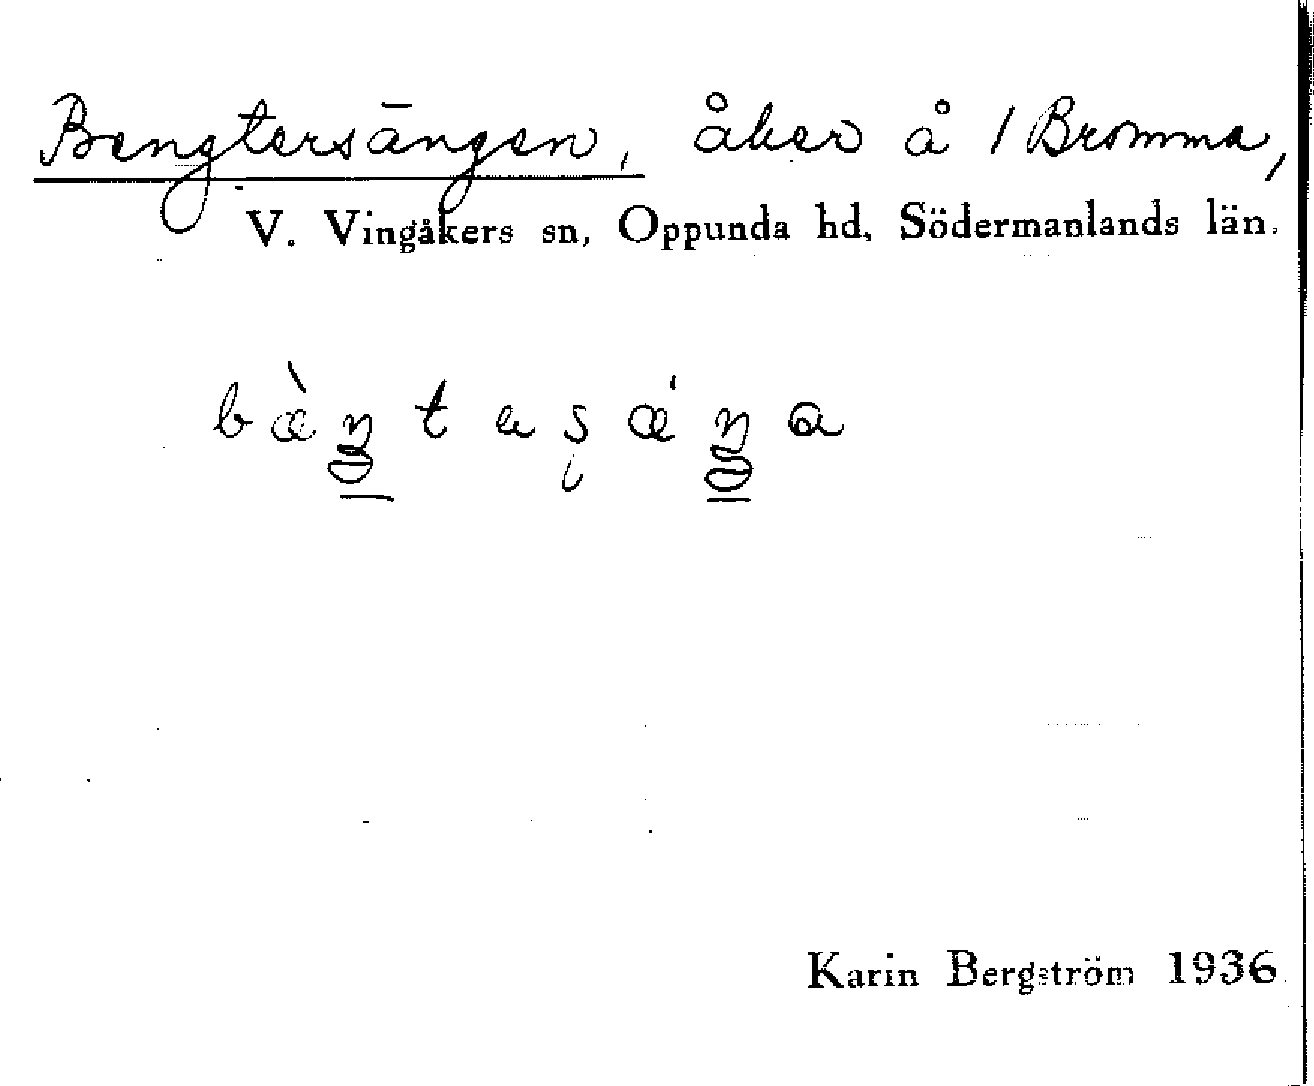 Bengtersängen, åker å 1 Bromma,
V. Vingåkers sn, Oppunda hd, Södermanlands län.
Karin Bergström 1936